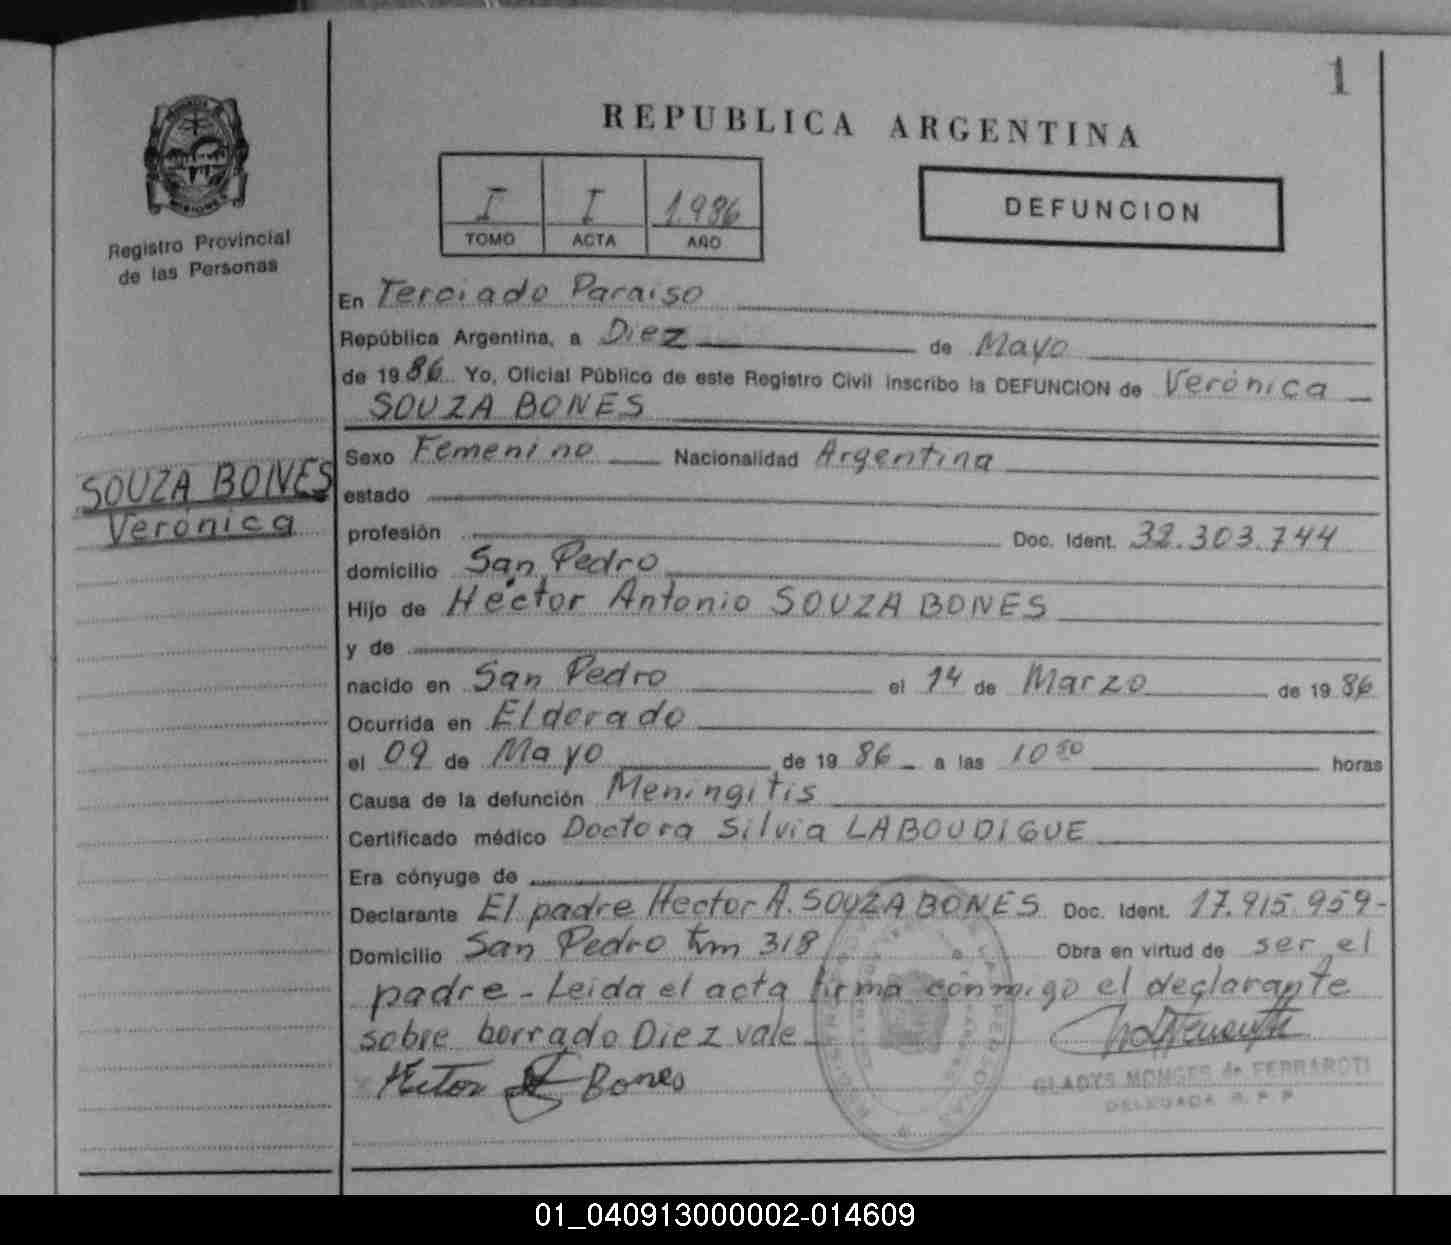 1
REPUBLICA ARGENTINA
MISIONES
Registro Provincial
de las Personas
I I 1.986
TOMO ACTA AÑO
DEFUNCION
En Terciado Paraiso
República Argentina, a Diez de Mayo
de 19 86 Yo, Oficial Público de este Registro Civil inscribo la DEFUNCION de Verónica
SOUZA BONES
SOUZA BONES
Verónica
Sexo Femenino Nacionalidad Argentina
estado
profesión Doc. Ident. 32.303.744
domicilio San Pedro
Hijo de Héctor Antonio SOUZA BONES
y de
nacido en San Pedro el 14 de Marzo de 19 86
Ocurrida en Eldorado
el 09 de Mayo de 19 86 a las 10 horas
Causa de la defunción Meningitis
Certificado médico Doctora Silvia LABOUDIGUE
Era cónyuge de
Declarante El padre Hector A. SOUZA BONES Doc. Ident. 17.915.959-
Domicilio San Pedro km 318 Obra en virtud de ser el
padre - Leida el acta firma conmigo el declarante
sobre borrado Diez vale
Hector Bones
GLADYS MONGES de FERRAROTI
DELEGADA R.P.P
01_040913000002-014609